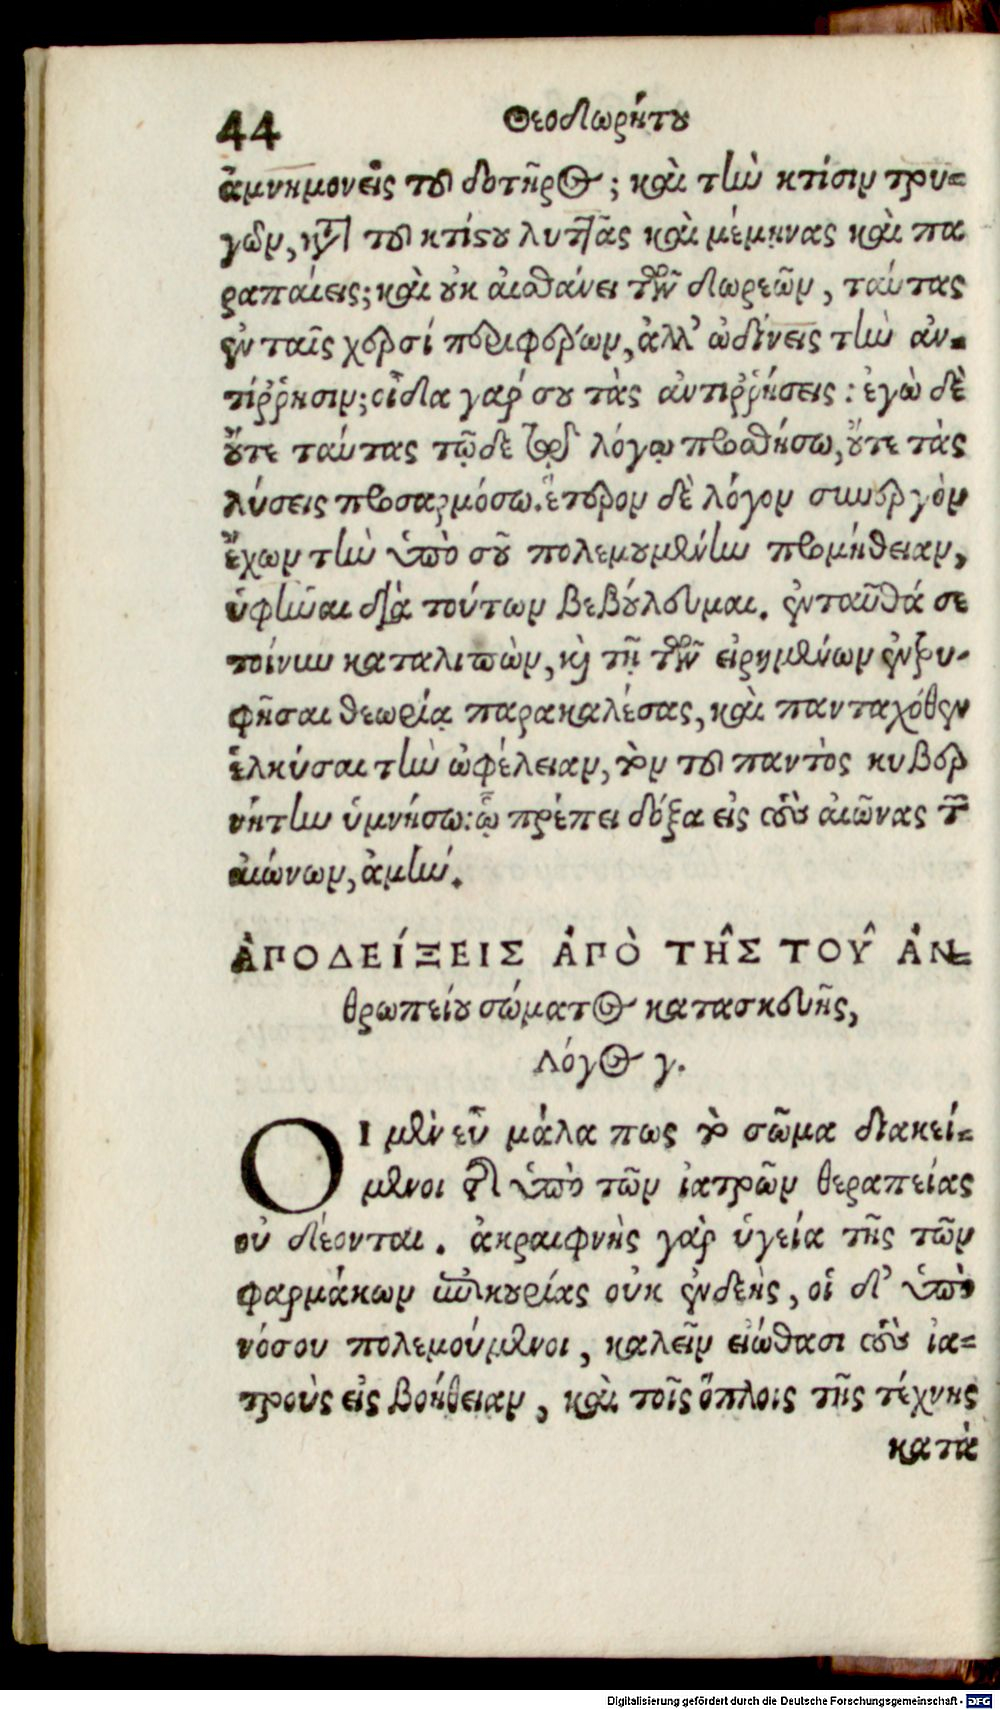 44 Θεοδωρήτου
ἀμνημονεῖς τοῦ δοτῆρος; καὶ τὴν κτίσιν τρυ-
γῶν, κατὰ τοῦ κτίστου λυττᾷς καὶ μέμηνας καὶ πα
ραπαίεις; καὶ οὐκ αἰσθάνει τῶν δωρεῶν, ταύτας
ἐν ταῖς χερσί περιφέρων, ἀλλ' ὠδίνεις τὴν ἀν-
τίῤῥησιν; οἶδα γάρ σου τὰς ἀντιῤῥήσεις: ἐγὼ δὲ
οὔτε ταύτας τῷδε τῷ λόγῳ προσθήσω, οὔτε τὰς
λύσεις προσαρμόσω. ἕτερον δὲ λόγον συνεργὸν
ἔχων τὴν ὑπὸ σοῦ πολεμουμένην προμήθειαν,
ὑφῆναι διὰ τούτων βεβούλευμαι. ἐνταῦθά σε
τοίνυν καταλιπὼν, καὶ τῇ τῶν εἰρημένων ἐντρυ-
φῆσαι θεωρίᾳ παρακαλέσας, καὶ πανταχόθεν
ἑλκύσαι τὴν ὠφέλειαν, τὸν τοῦ παντὸς κυβερ
νήτην ὑμνήσω: ᾧ πρέπει δόξα εἰς τοὺς αἰῶνας τῶν
αἰώνων, ἀμήν.
ἈΠΟΔΕΊΞΕΙΣ ἈΠῸ ΤΗ͂Σ ΤΟΥ͂ ἈΝ-
θρωπείου σώματος κατασκευῆς,
Λόγος γ.
ΟΙ μὲν εὖ μάλα πως τὸ σῶμα διακεί-
μενοι τῆς ὑπὸ τῶν ἰατρῶν θεραπείας
οὐ δέονται. ἀκραιφνὴς γὰρ ὑγεία τῆς τῶν
φαρμάκων ἐπικουρίας οὐκ ἐνδεὴς, οἱ δ' ὑπὸ
νόσου πολεμούμενοι, καλεῖν εἰώθασι τοὺς ἰα-
τροὺς εἰς βοήθειαν, καὶ τοῖς ὅπλοις τῆς τέχνης
κατὰ
Digitalisierung gefördert durch die Deutsche Forschungsgemeinschaft - DFG